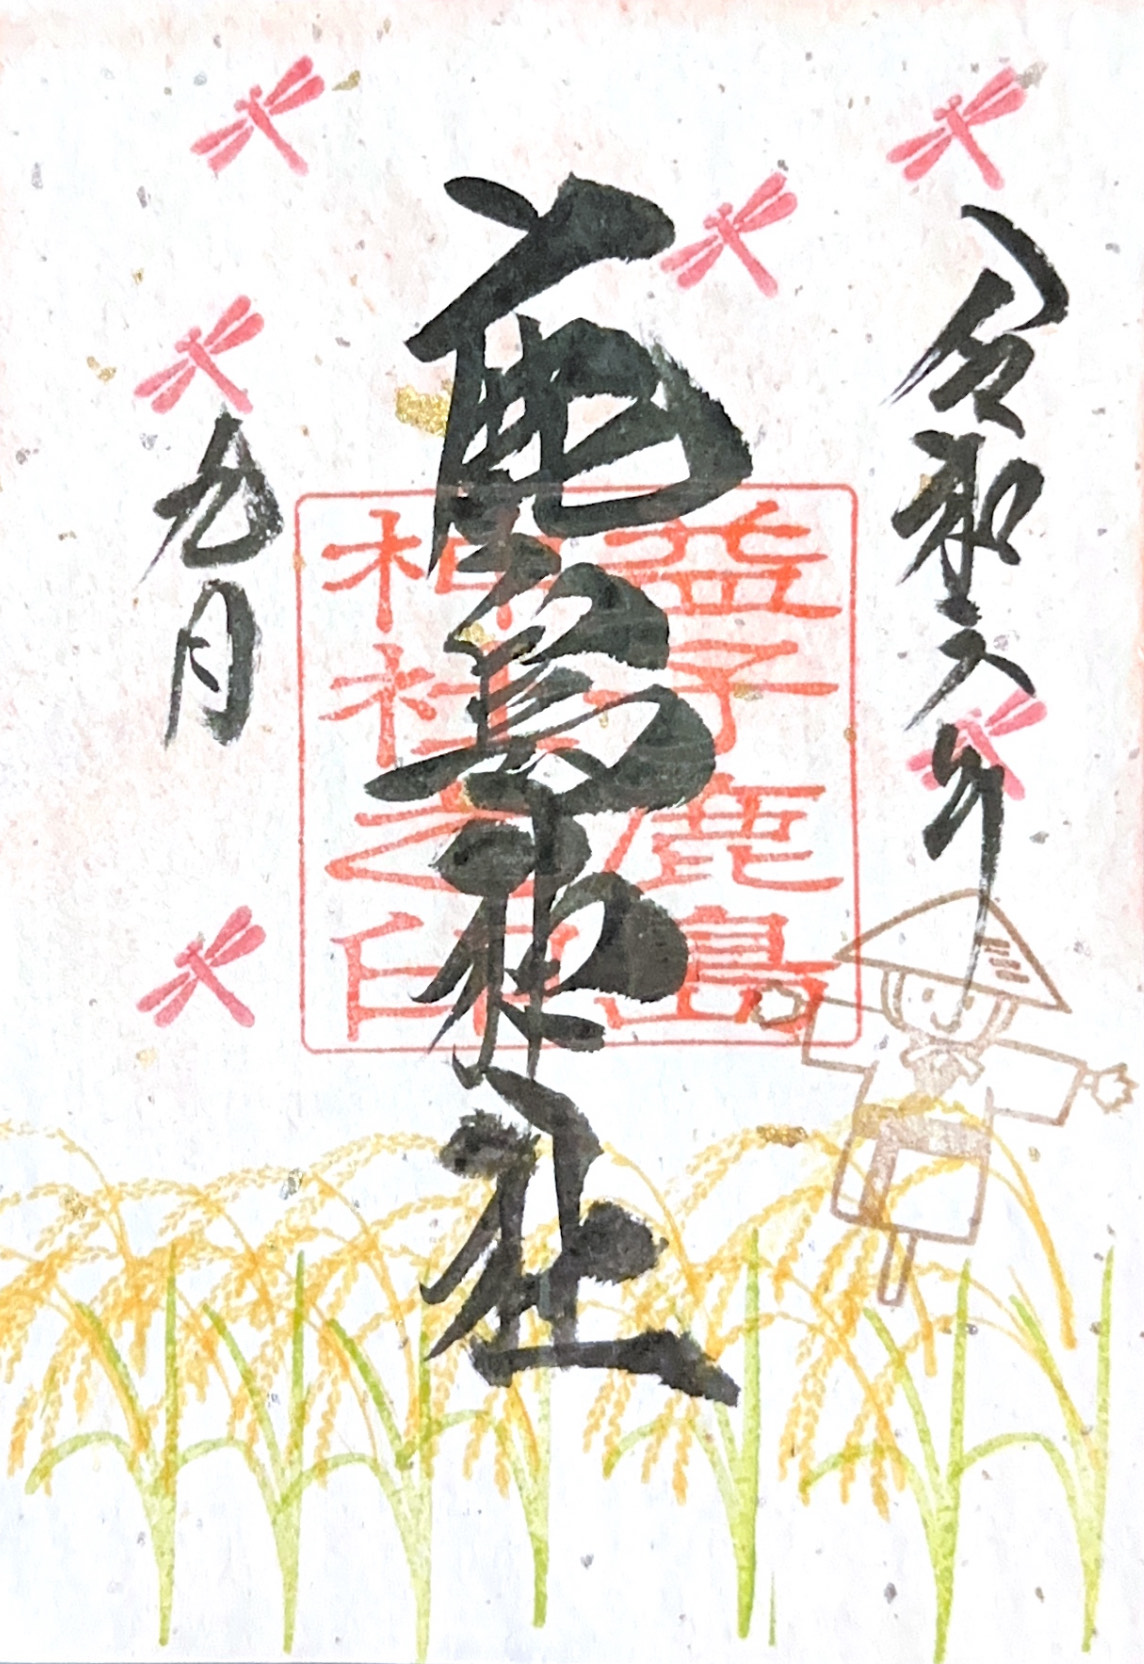 令和六年
鹿島神社
益子鹿島
神社之印
九月